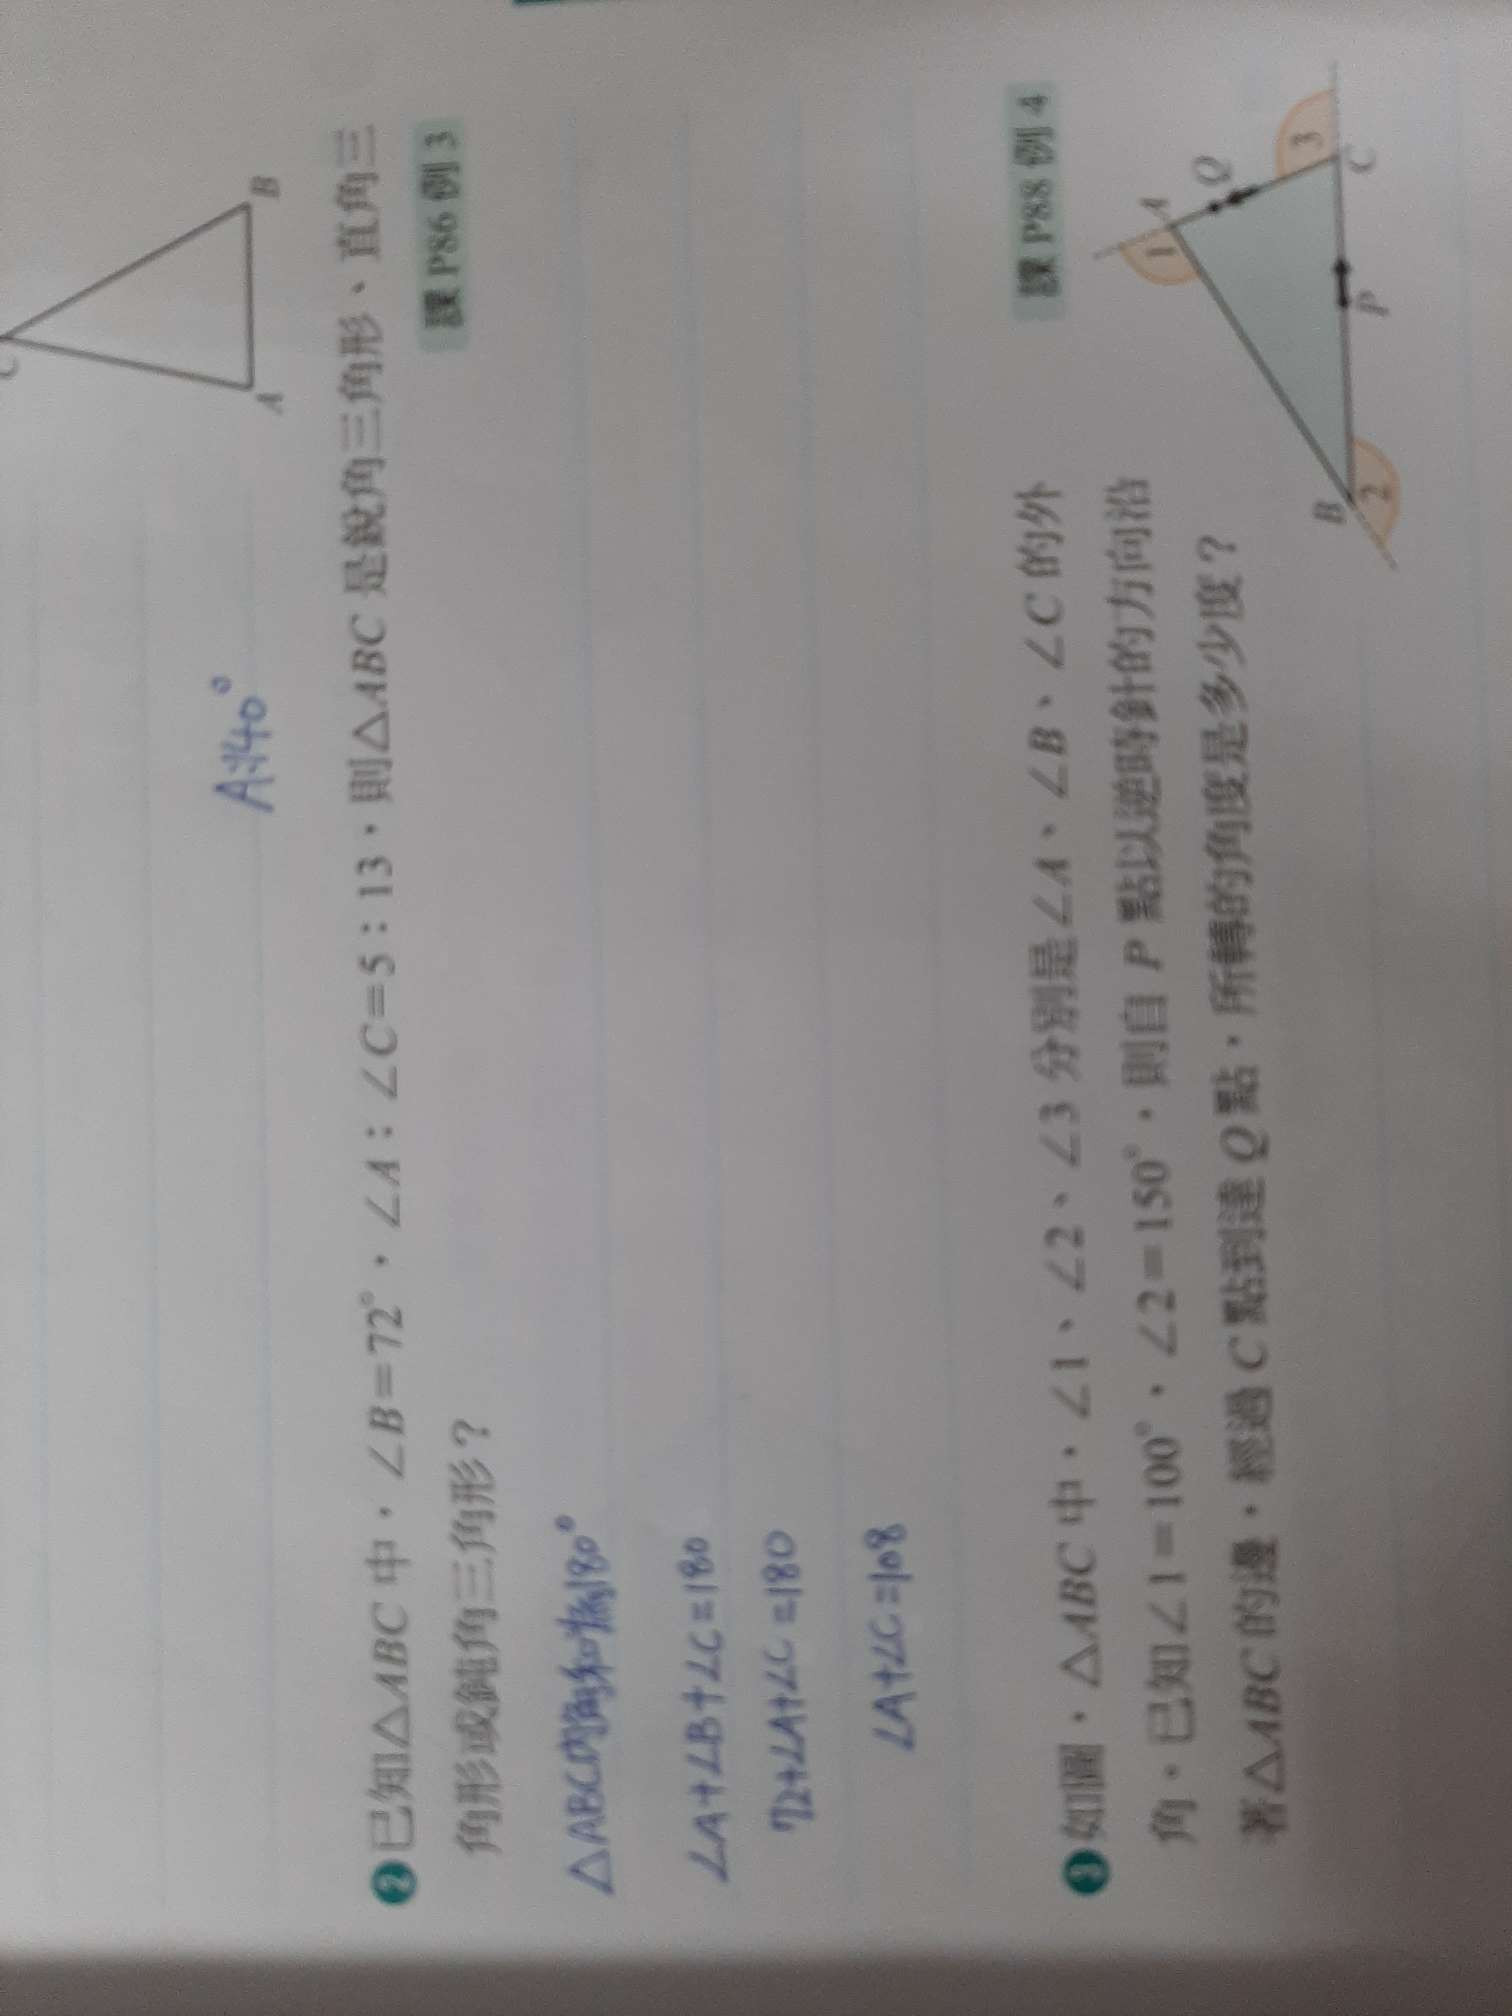 C
A
B
A:40°
❷已知△ABC中，∠B=72°，∠A：∠C=5：13，則△ABC是銳角三角形、直角三
角形或鈍角三角形？
課P86例3
△ABC內角和為180°
∠A+∠B+∠C=180
72+∠A+∠C=180
∠A+∠C=108
❸如圖，△ABC中，∠1、∠2、∠3分別是∠A、∠B、∠C的外
角。已知∠1=100°，∠2=150°，則自P點以逆時針的方向沿
著△ABC的邊，經過C點到達Q點，所轉的角度是多少度？
課P88例4
A
1
Q
3
B
2
P
C